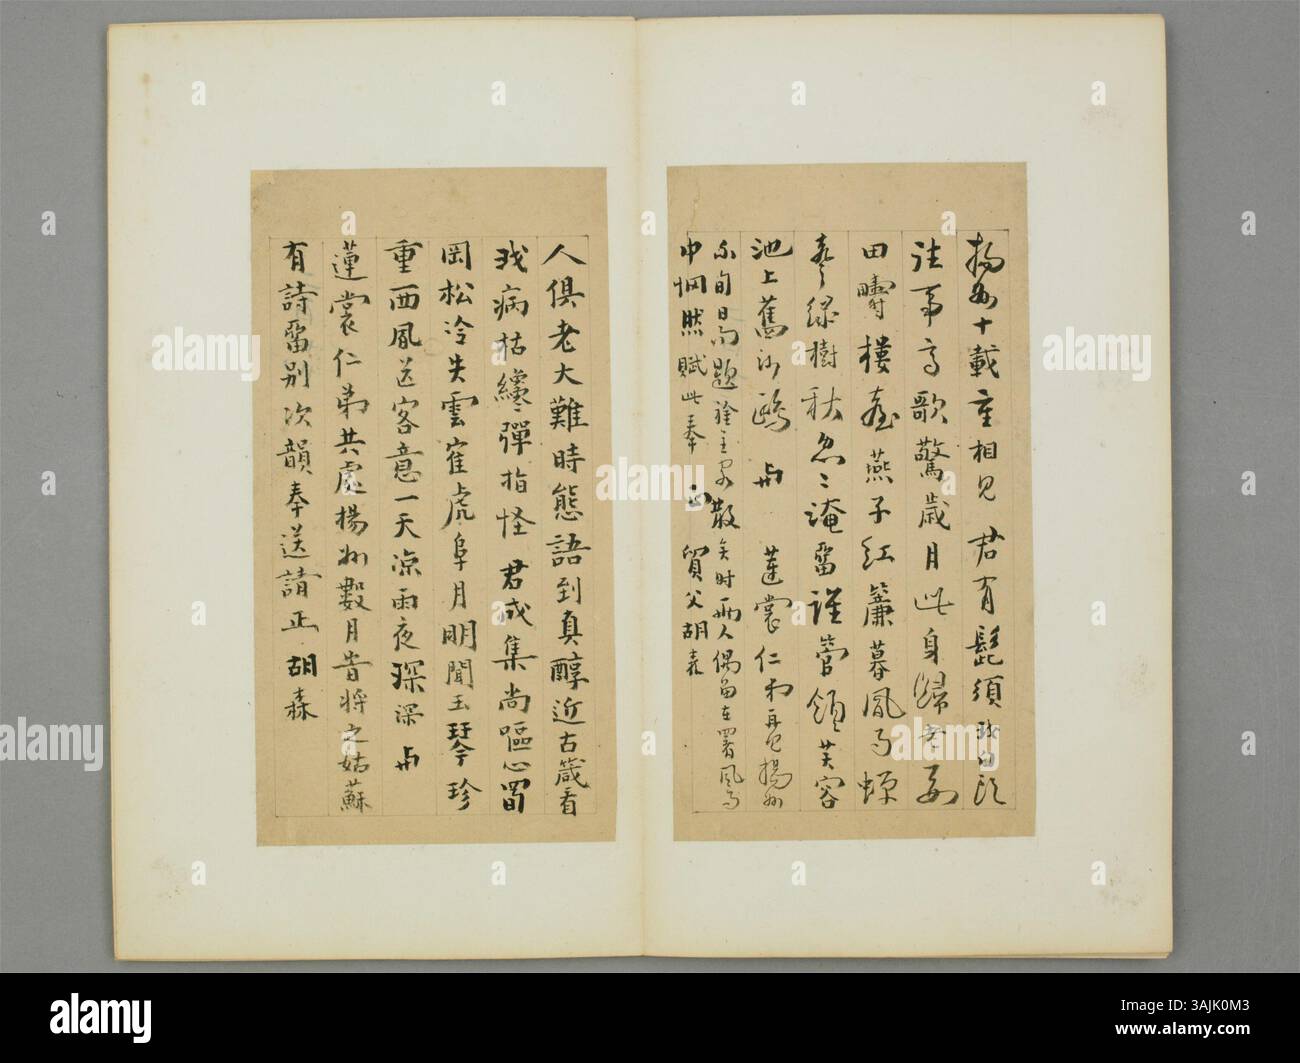 揚州十載重相見君有髭須我白頭
往事高歌驚歲月此身歸去
田疇樓臺燕子紅簾暮風雨
綠樹秋忽忽淹留誰管領芙容
池上舊沙鷗 與蓮裳仁弟再見揚州
不旬日而題 散矣時兩人偶留在署風雨
中惘然賦此奉 正 質父胡森
人俱老大難時態語到真醇近古箴看
我病枯纔彈指怪君成集尚嘔心蜀
岡松冷失雲寉虎阜月明聞玉琴珍
重西風送客意一天涼雨夜琛深 與
蓮裳仁弟共處揚州數月昔將之姑蘇
有詩畱别次韻奉送請正 胡森
alamy
Image ID: 3AJK0M3
www.alamy.com